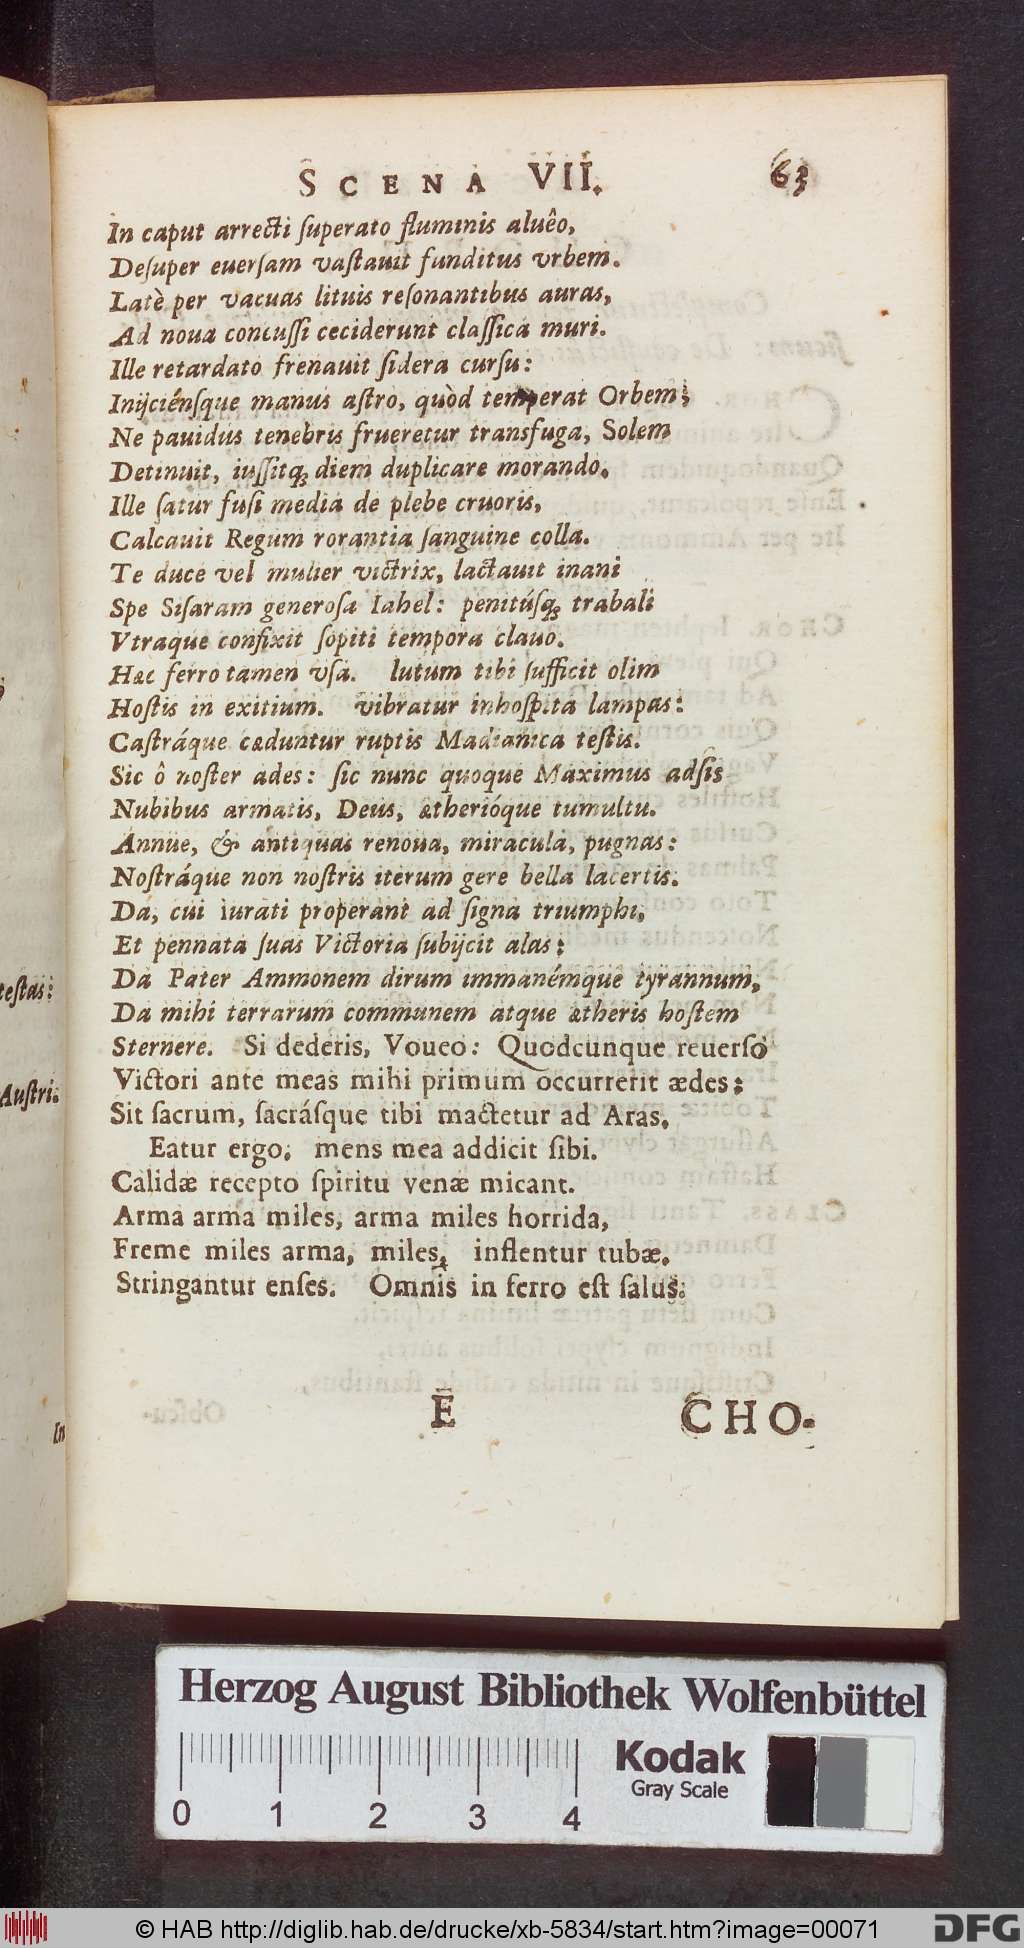 SCENA VII. 63
In caput arrecti ſuperato fluminis aluêo,
Deſuper euerſam vaſtauit funditus vrbem.
Latè per vacuas lituis reſonantibus auras,
Ad noua concuſſi ceciderunt claſſica muri.
Ille retardato frenauit ſidera curſu:
Inijciénſque manus aſtro, quòd temperat Orbem;
Ne pauidus tenebris frueretur transfuga, Solem
Detinuit, iuſſitq́; diem duplicare morando.
Ille ſatur fuſi media de plebe cruoris,
Calcauit Regum rorantia ſanguine colla.
Te duce vel mulier victrix, lactauit inani
Spe Siſaram generoſa Iahel: penitúſq; trabali
Vtraque confixit ſopiti tempora clauo.
Hæc ferro tamen vſa. lutum tibi ſufficit olim
Hoſtis in exitium. vibratur inhoſpita lampas:
Caſtráque cæduntur ruptis Madianica teſtis.
Sic ô noſter ades: ſic nunc quoque Maximus adſis
Nubibus armatis, Deus, ætherióque tumultu.
Annue, & antiquas renoua, miracula, pugnas:
Noſtráque non noſtris iterum gere bella lacertis.
Da, cui iurati properant ad ſigna triumphi,
Et pennata ſuas Victoria ſubijcit alas;
Da Pater Ammonem dirum immanémque tyrannum,
Da mihi terrarum communem atque ætheris hoſtem
Sternere. Si dederis, Voueo: Quodcunque reuerſo
Victori ante meas mihi primum occurrerit ædes;
Sit ſacrum, ſacráſque tibi mactetur ad Aras.
Eatur ergo; mens mea addicit ſibi.
Calidæ recepto ſpiritu venæ micant.
Arma arma miles, arma miles horrida,
Freme miles arma, miles, inflentur tubæ.
Stringantur enſes. Omnis in ferro eſt ſalus.
E CHO-
teſtas:
Auſtri.
In
Herzog August Bibliothek Wolfenbüttel
Kodak
Gray Scale
0 1 2 3 4
© HAB http://diglib.hab.de/drucke/xb-5834/start.htm?image=00071
DFG